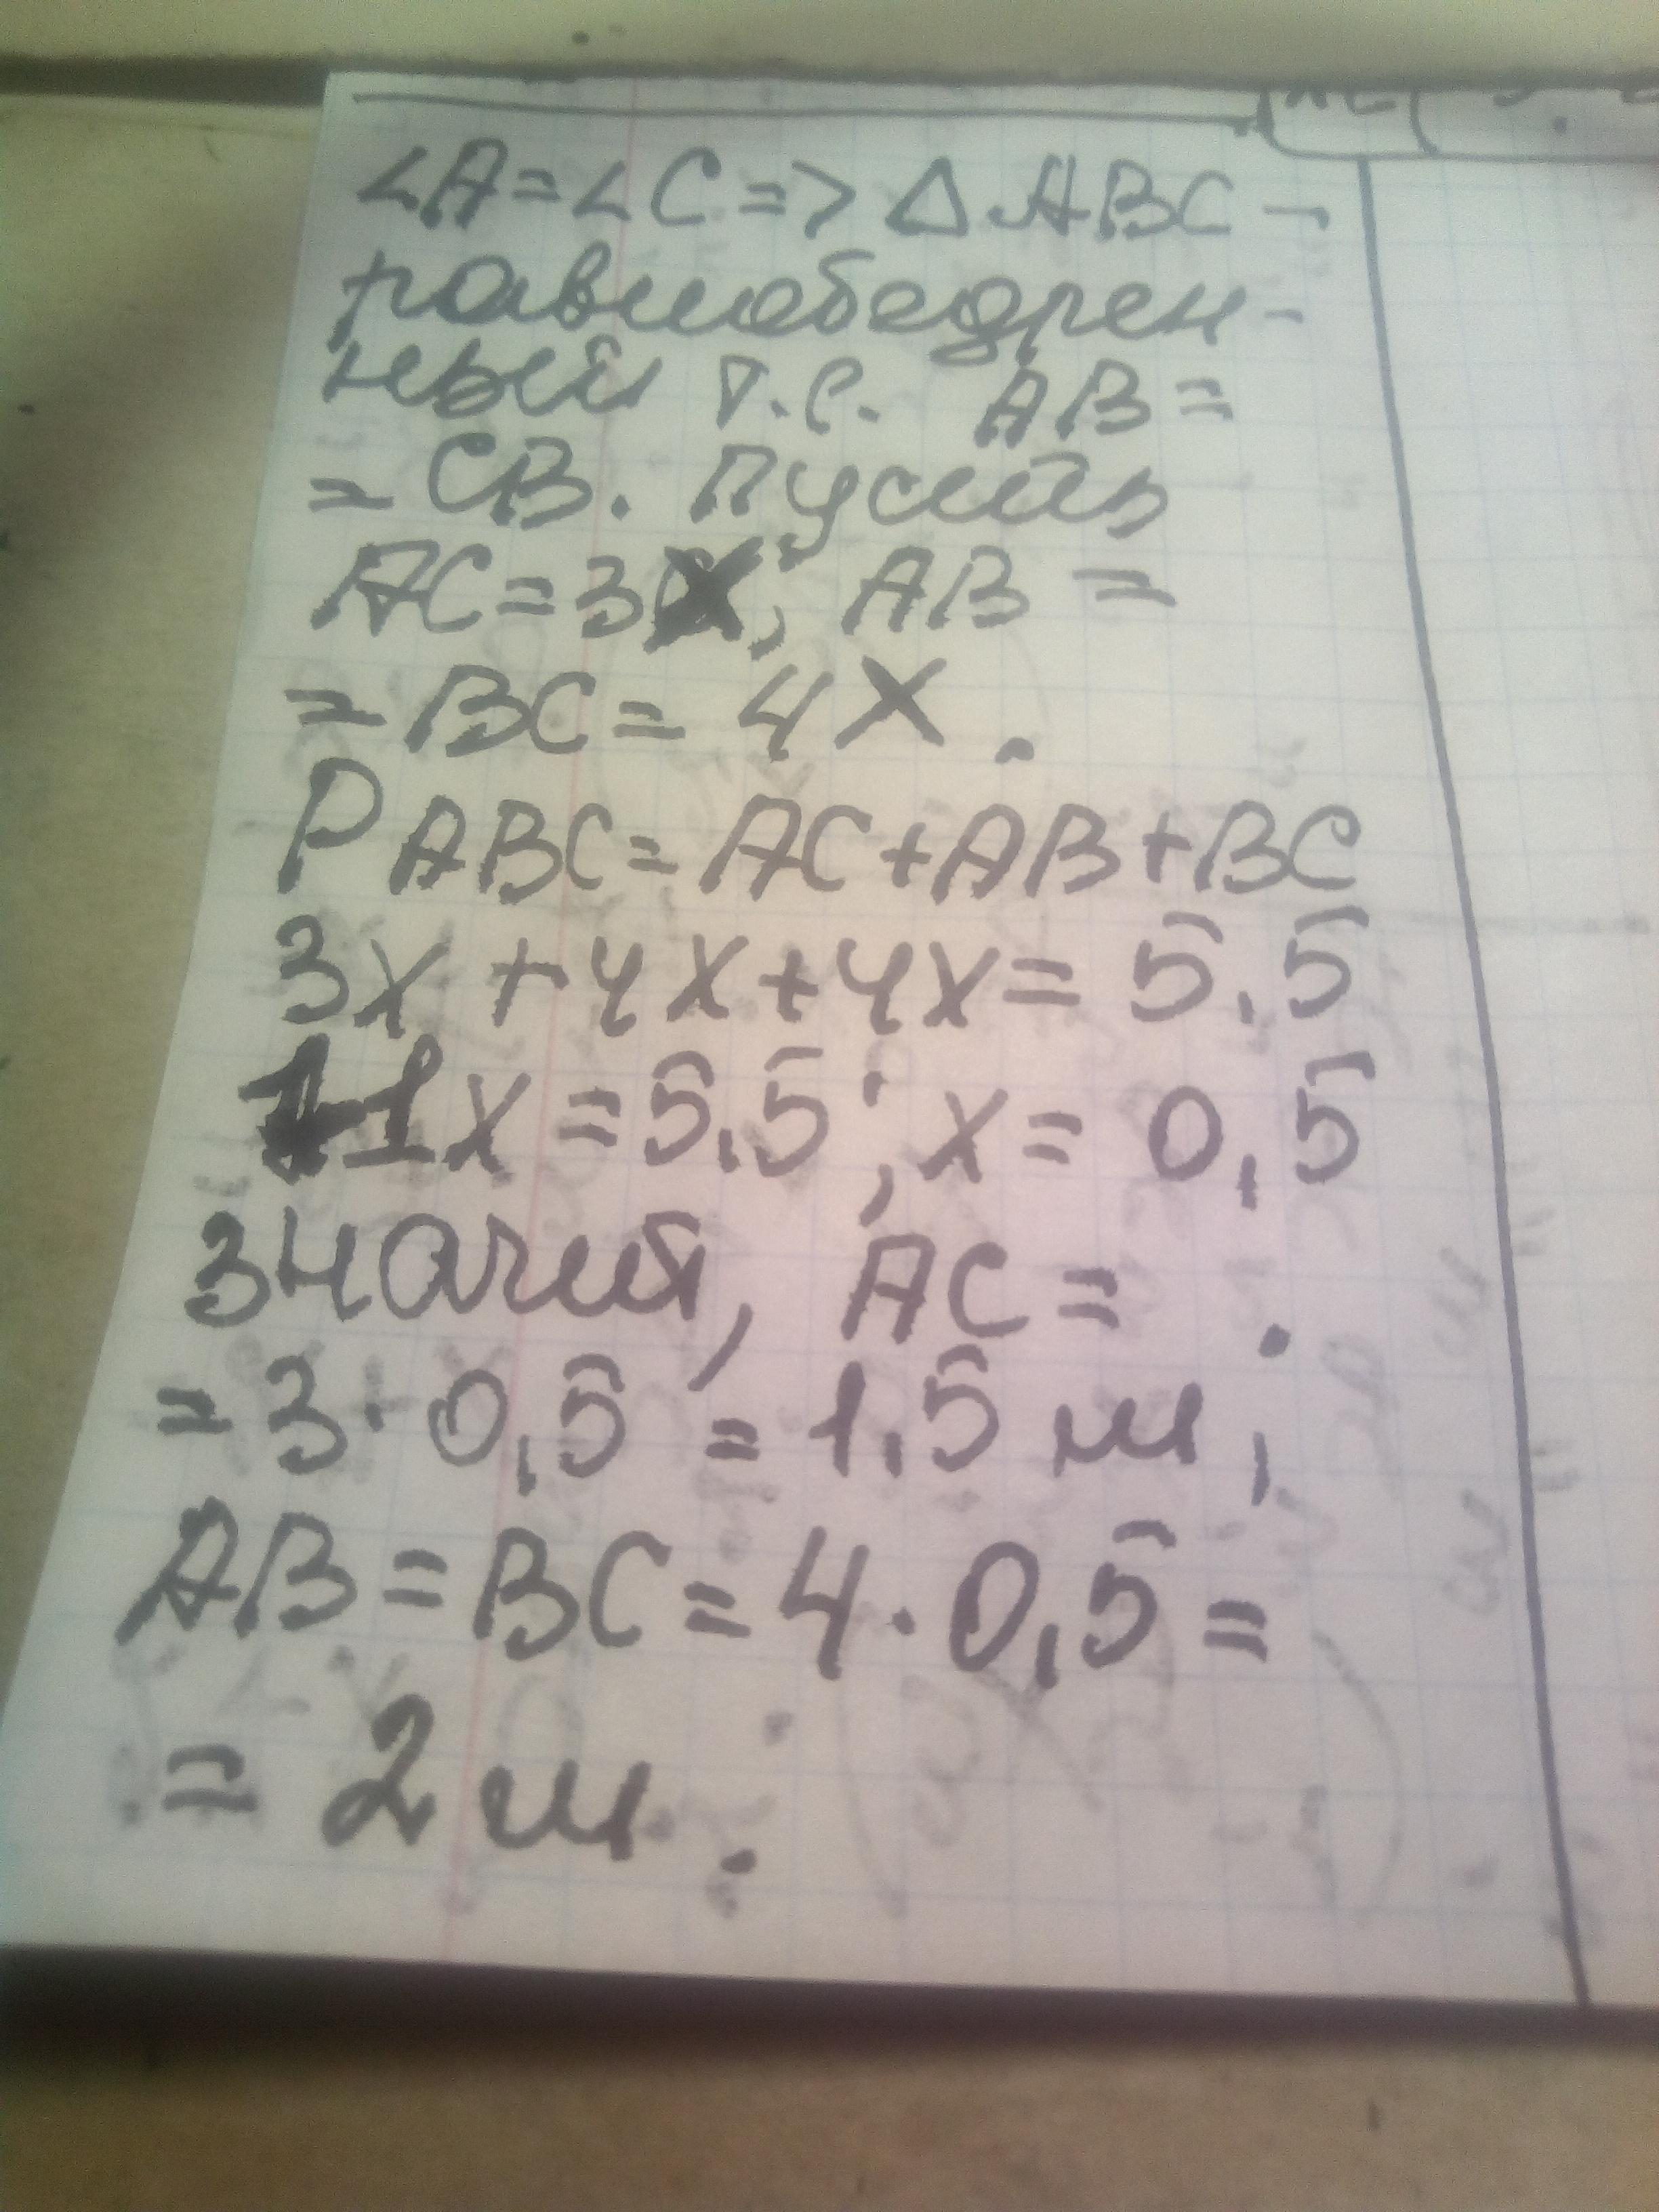 ∠A=∠C=> △ABC -
равнобедрен-
ный т.е. AB=
=CB. Пусть
AC=3x; AB =
=BC=4x.
P ABC=AC+AB+BC
3x+4x+4x=5,5
11x=5,5; x=0,5
Значит, AC=
=3·0,5=1,5 м,
AB=BC=4·0,5=
=2 м.